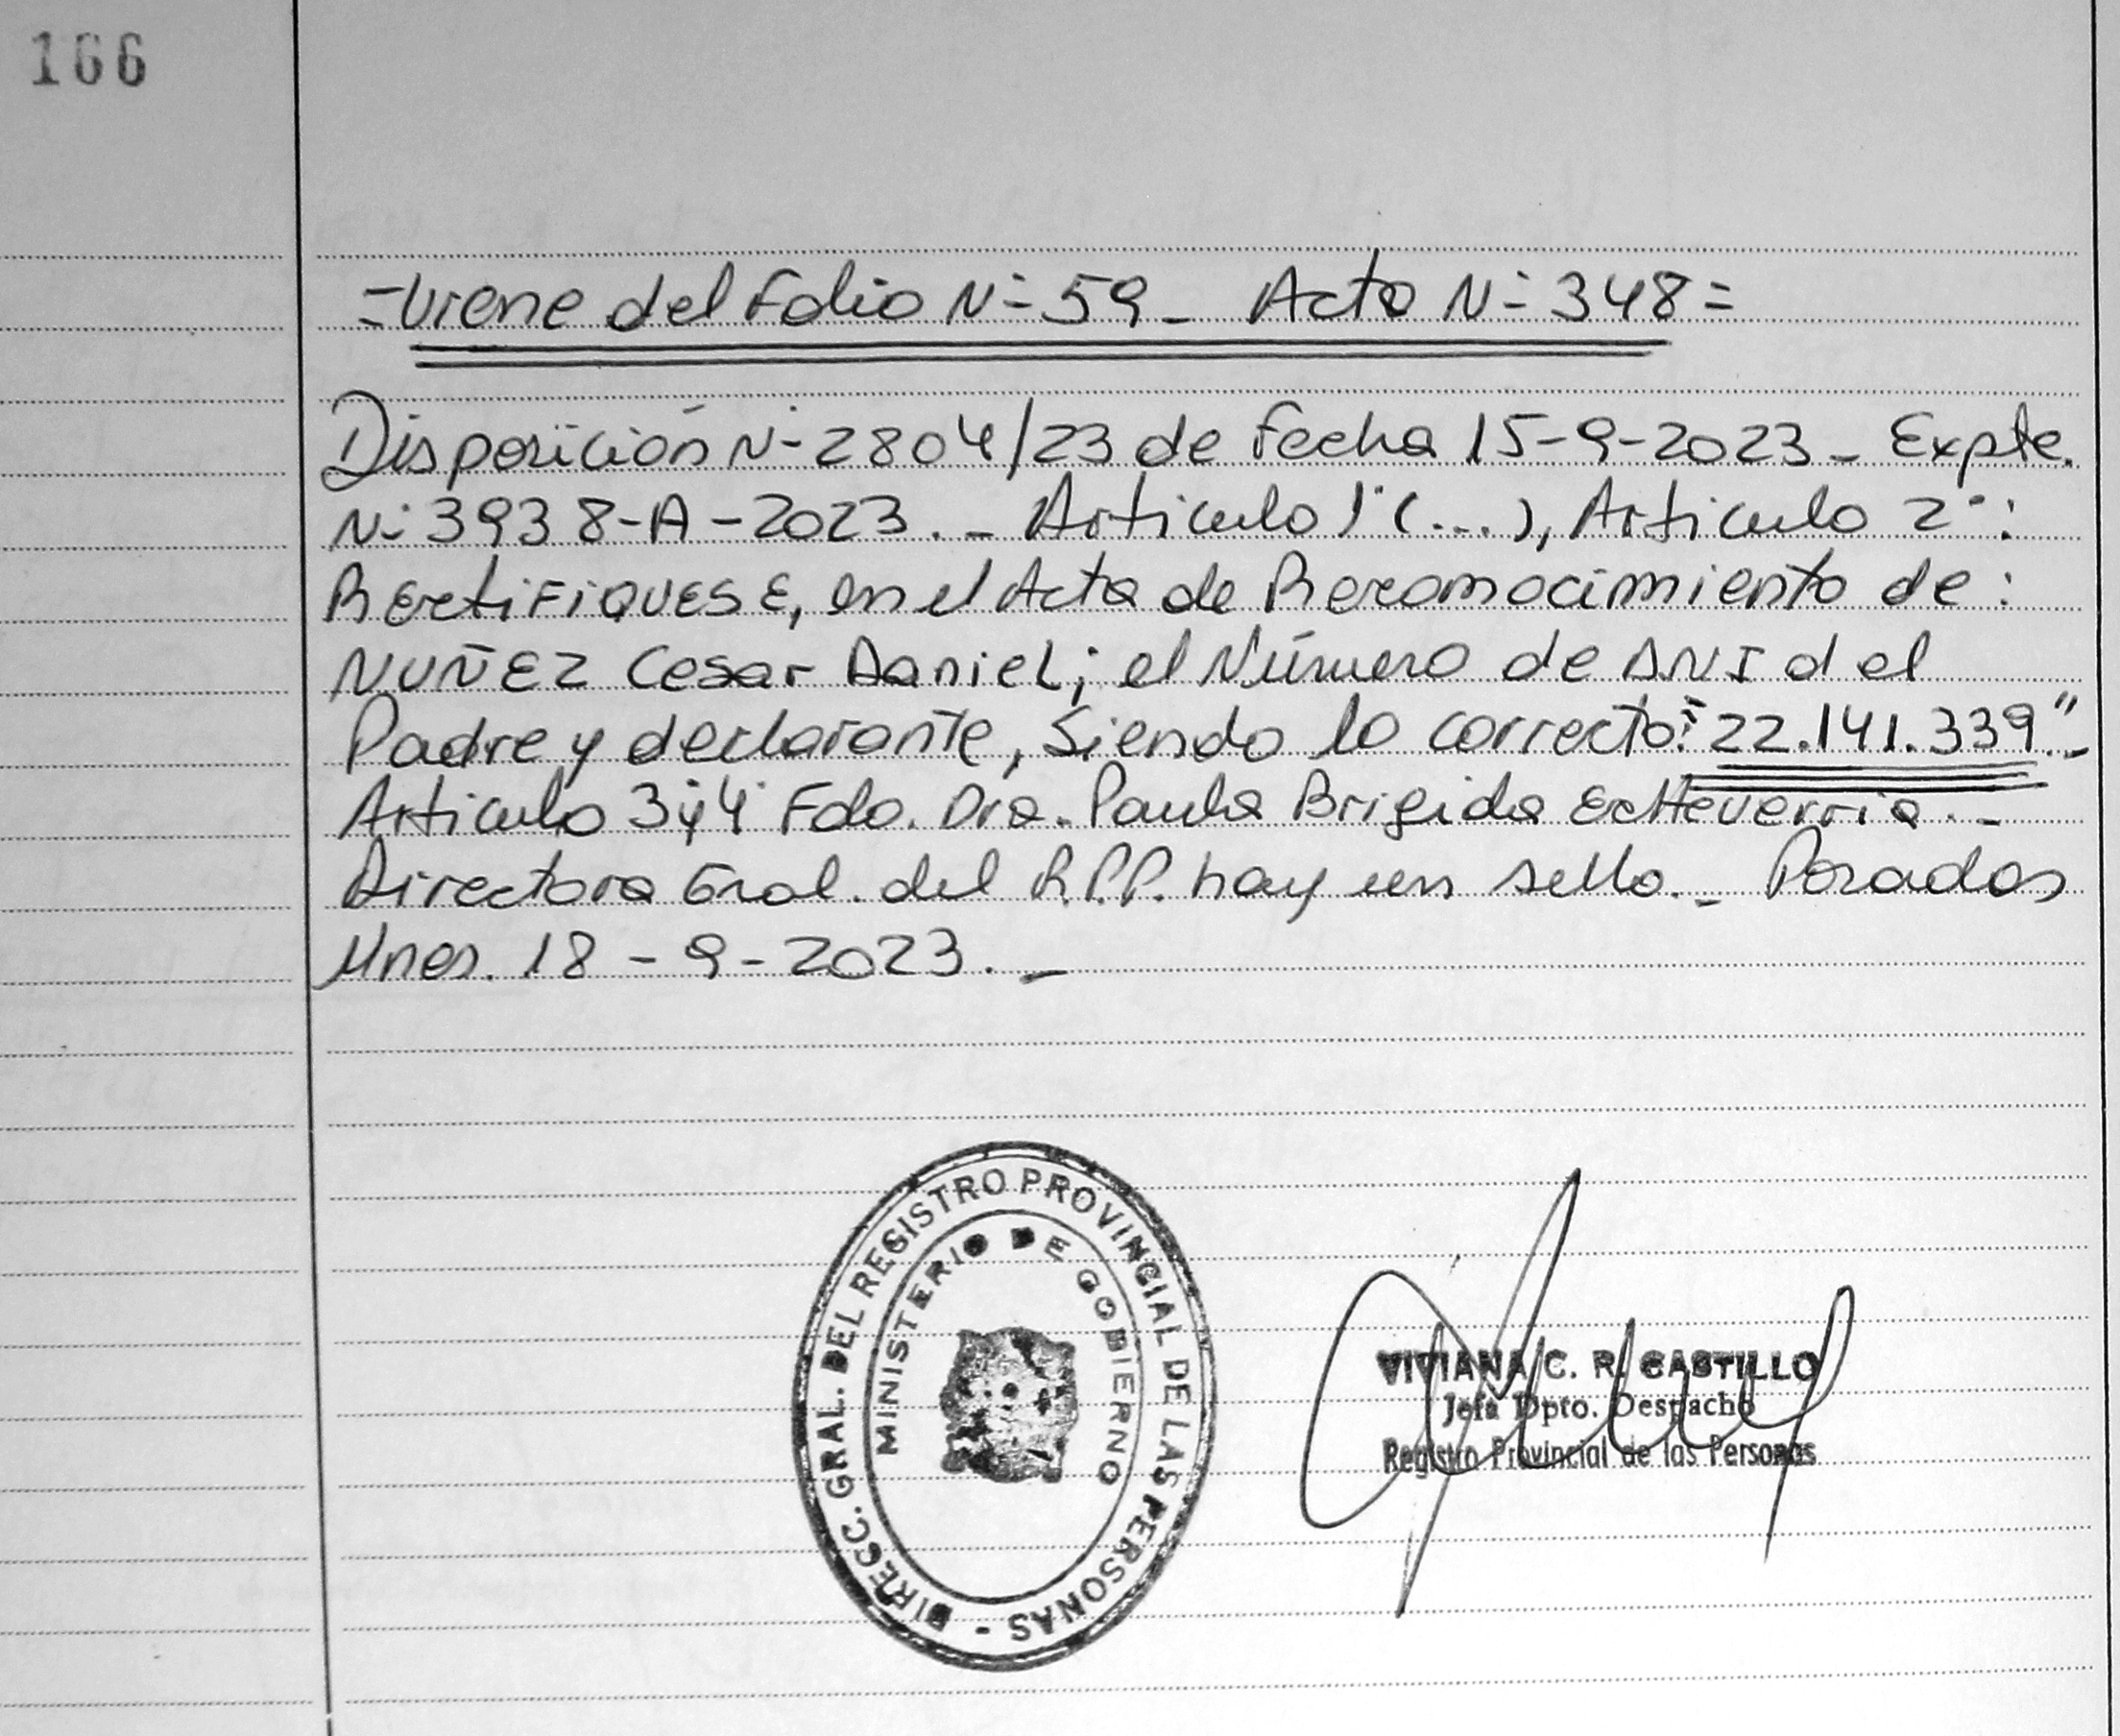 166
=Viene del Folio N° 59_ Acta N° 348=
Disposición N° 2804/23 de Fecha 15-9-2023_ Expte.
N° 3938-A-2023._ Articulo 1° (...), Articulo 2°:
RECtiFIQUESE, en el Acta de Reconocimiento de:
NUÑEZ Cesar Daniel; el Número de DNI del
Padre y declarante, Siendo lo correcto: "22.141.339"._
Articulo 3 y 4 Fdo. Dra. Paula Brigida Echeverria._
Directora Gral. del R.P.P. hay un sello._ Posadas
Mnes. 18-9-2023._
DIRECC. GRAL. DEL REGISTRO PROVINCIAL DE LAS PERSONAS -
MINISTERIO DE GOBIERNO
VIVIANA C. R. CASTILLO
Jefa Dpto. Despacho
Registro Provincial de las Personas